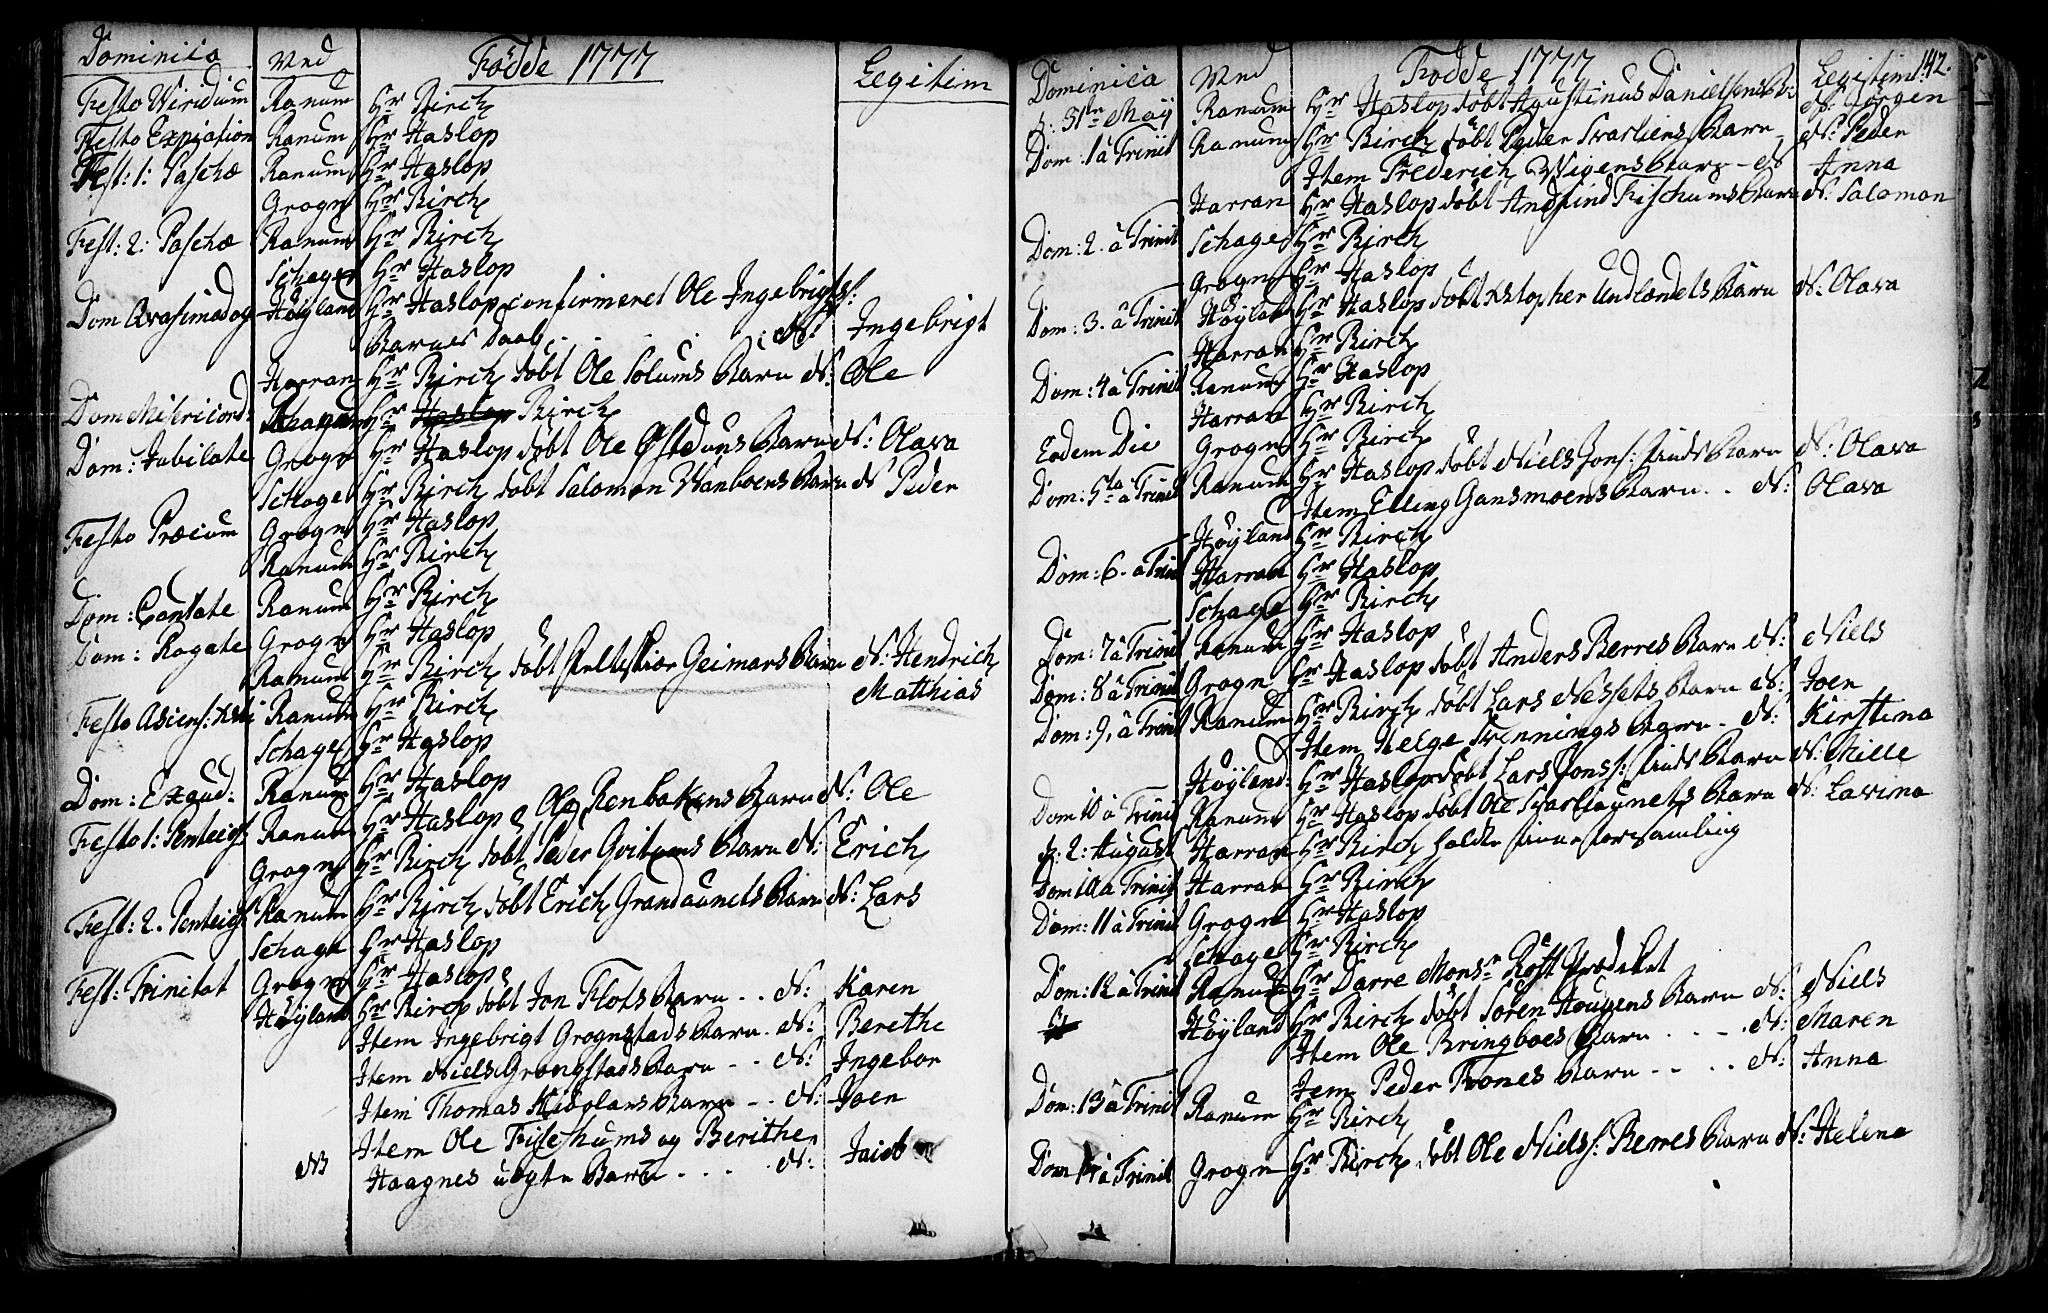 Dominica Ved Fødde 1777 Legitim
Festo Viridium Ranum Hr Birch
Festo Expiation Ranum Hr Haslop
Fest: 1: Paschæ Ranum Hr Haslop
Grogn Hr Birch
Fest: 2: Paschæ Ranum Hr Birch
Schage Hr Haslop
Dom Qvasimodog Høyland Hr Haslop confirmeret Ole Ingebrigts:
Barnes Daab . . . . N: Ingebrigt
Harran Hr Birch döbt Ole Solums Barn N: Ole
Dom Misericord: Hr Haslop Birch
Dom: Jubilate Grogn Hr Haslop döbt Ole Østduns Barn N: Olava
Schage Hr Birch döbt Salomon Vanboens Barn N Peder
Festo Præcum Grogn Hr Haslop
Ranum Hr Birch
Dom: Cantate Ranum Hr Birch
Dom: Rogate Grogn Hr Haslop
Ranum Hr Birch döbt Geimars Barn N: Hendrich
Matthias
Festo Ascens: Xsti Ranum Hr Birch
Schage Hr Haslop
Dom: Exaud: Ranum Hr Haslop
Festo 1: Ranum Hr Haslop Ole Renbakens Barn N: Ole
Grogn Hr Birch döbt Peder Barn N: Erich
Fest: 2. Ranum Hr Birch döbt Erich Grandaunets Barn N: Lars
Schage Hr Haslop
Fest: Trinitat Grogn Hr Haslop
Høyland Hr Birch döbt Jon Flots Barn . . N: Karen
Item Ingebrigt Grognstads Barn . N: Berethe
Item Niels Grongstads Barn . . N: Ingebor
Item Thomas Barn . . N: Joen
Item Ole Fischums og Berithe
NB Haagnes uægte Barn . . . . N: Jacob
Dominica Ved Fødde 1777 Legitim 142.
d: 31te Maÿ Ranum Hr Haslop döbt Agustinus Danielsens N: Jörgen
Dom: 1 â Trinit Ranum Hr Birch döbt Peder Svarliens Barn N: Peder
Item Frederich Vigens Barn - N Anna
Harran Hr Haslop döbt Andfind Fischums Barn N: Salomon
Dom: 2. â Trinit Schage Hr Birch
Grogn Hr Haslop
Dom: 3. â Trinit Høyland Hr Haslop döbt Xstopher Undlændets Barn N: Olava
Harran Hr Birch
Dom: 4 â Trinit Ranum Hr Haslop
Harran Hr Birch
Eodem Die Grogn Hr Birch
Dom: 5ta â Trinit Ranum Hr Haslop döbt Niels Jons: Barn N: Olava
Item Elling Gansmoens Barn . . N: Olava
Høyland Hr Birch
Dom: 6. â Trinit Harran Hr Haslop
Schage Hr Birch
Dom: 7 â Trinit Ranum Hr Haslop
Dom: 8 â Trinit Grogn Hr Haslop döbt Anders Berres Barn N: Niels
Dom: 9, â Trinit Ranum Hr Birch döbt Lars Nessets Barn N: Joen
Item Helge Barn . N: Kirstina
Høyland: Hr Haslop döbt Lars Jons: Barn N: Mille
Dom 10 â Trinit Ranum Hr Haslop döbt Ole Svarliaunets Barn N: Lavina
d: 2: August Harran Hr Birch
Dom 10 â Trinit Harran Hr Birch
Dom: 11 â Trinit Grogn Hr Haslop
Schage Hr Birch
Dom: 12 â Trinit Ranum Hr Darre Monsr Prædiket
Høyland Hr Birch döbt Sören Hougens Barn N: Niels
Item Ole Bringboes Barn . . . . N: Maren
Item Peder Tromes Barn . . . . N: Anna
Dom: 13 â Trinit Ranum Hr Birch
Dom 14 â Trinit Grogn Hr Birch döbt Ole Niels: Berres Barn N: Helena